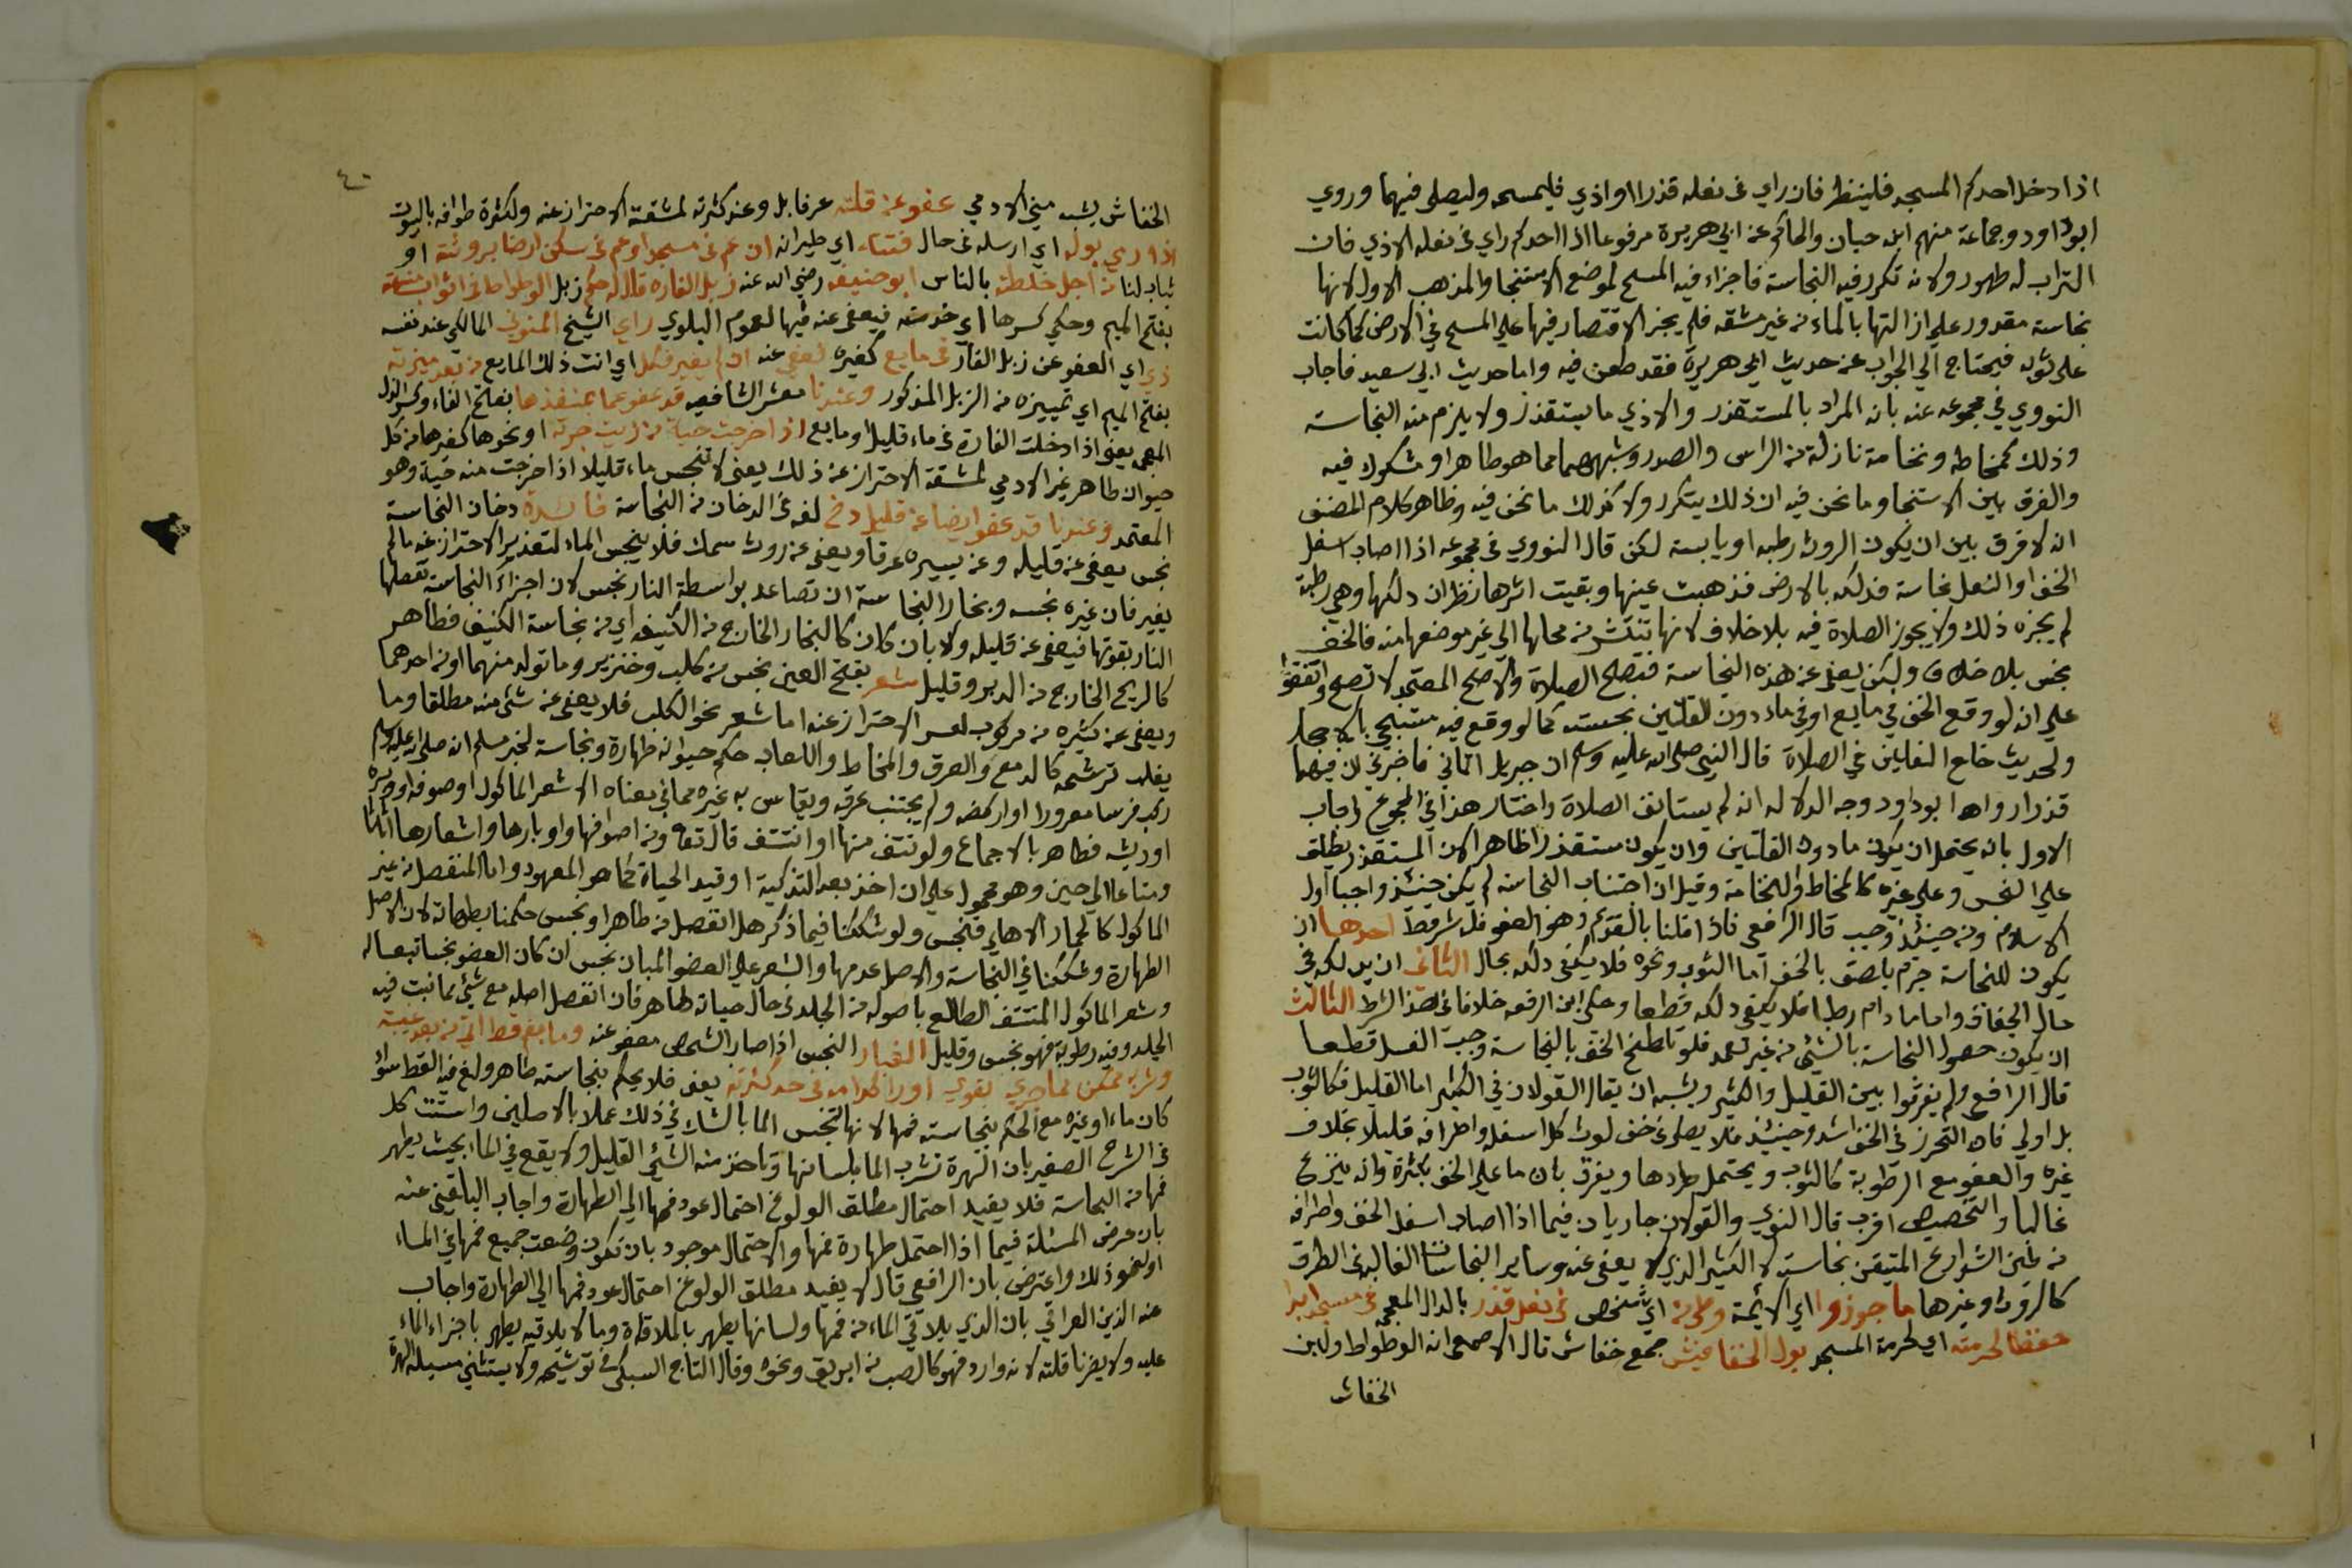 اذا دخل احدكم المسجد فلينظر فان راي في نعله قذرا او اذي فليمسحه وليصلي فيهما وروي
ابو داود وجماعة منهم ابن حبان والحاكم عن ابي هريرة مرفوعا اذا احدكم راي في نعله الاذي فان
التراب له طهور ولانه تكرر فيه النجاسة فاجزاء فيه المسح لموضع الاستنجا والمذهب الاول لانها
نجاسة مقدور علي ازالتها بالماء من غير مشقه فلم يجز الاقتصار فيها علي المسح في الارض كما كانت
علي ثوبه فيحتاج الي الجواب عن حديث ابي هريرة فقد طعن فيه واما حديث ابي سعيد فاجاب
النووي في مجموعه عنه بان المراد بالمستقذر والاذي ما يستقذر ولا يلزم منه النجاسة
وذلك كمخاطه ونخامة نازلة من الراس والصدر وشبههما مما هو طاهر او مشكوك فيه
والفرق بين الاستنجا وما نحن فيه ان ذلك يتكرر ولا كذلك ما نحن فيه وظاهر كلام المصنف
انه لا فرق بين ان يكون الروث رطبه او يابسة لكن قال النووي في مجموعه اذا اصاب اسفل
الخف او النعل نجاسة فدلكه بالارض فذهبت عينها وبقيت اثرها نظر ان دلكها وهي رطبة
لم يجزه ذلك ولا يجوز الصلاة فيه بلا خلاف لانها تنتشر من محالها الي غير موضعها منه فالخف
نجس بلا خلاف ولكن يعفي عن هذه النجاسة فتصح الصلاة والاصح المعتمد لا تصح واتفقوا
علي انه لو وقع الخف في مايع او في ماء دون القلتين نجسته كما لو وقع فيه مستنجي بالاحجار
ولحديث خلع النعلين في الصلاة قال النبي صلي الله عليه وسلم ان جبريل اتاني فاخبرني ان فيهما
قذرا رواه ابو داود وجه الدلاله انه لم يستانف الصلاة واختار هذا في المجموع واجاب
الاول بانه يحتمل ان يكون ما دون القلتين وان يكون مستقذرا طاهرا لان المستقذر يطلق
علي النجس وعلي غيره كالمخاط والنخامة وقيل ان اجتناب النجاسة لم يكن حينئذ واجبا اول
الاسلام ومن حينئذ وجب قال الرافعي فاذا قلنا بالقديم وهو العفو فله شروط احدها ان
يكون للنجاسة جرم يلصق بالخف اما البول ونحوه فلا يكفي دلكه بحال الثاني ان يدلكه في
حال الجفاف واما ما دام رطبا فلا يكفي دلكه قطعا وحكي ابن الرفعه خلافا في هذا الشرط الثالث
ان يكون حصول النجاسة بالشئ من غير تعمد فلو تلطخ الخف بالنجاسة وجب الغسل قطعا
قال الرافعي ولم يفرقوا بين القليل والكثير ويشبه ان يقال القولان في الكثير اما القليل فكالثوب
بل اولي فان التحرز في الخف اشد وحينئذ فلا يصلي في خف لوث كل اسفله واطرافه قليلا بخلاف
غيره والعفو مع الرطوبة كالثوب ويحتمل طردها ويفرق بان ما علي الخف بكثرة وانه ينزع
غالبا والتخصيص اقرب قال النووي والقولان جاريان فيما اذا اصاب اسفل الخف واطرافه
من طين الشوارع المتيقن نجاسته لا الكثير الذي لا يعفي عنه وساير النجاسات الغالبة في الطرق
كالروث وغيرها ما جوزوا اي الائمة وطي من اي شخص في نعل قذر بالدال المعجمه في مسجد ابدا
حفظا لحرمته اي لحرمة المسجد بول الخفافيش جمع خفاش قال الاصمعي انه الوطواط ولبن
الخفاش
٤٠
الخفاش يشبه مني الادمي عفو عن قلته عرفا بل وعند كثرته لمشقة الاحتراز عنه ولكثرة طوافه بالبيوت
اذا رمي بوله اي ارسله في حال اي طيرانه ان عم في مسجد او عم في سكن ارضا بروثة او
ثياب لنا من اجل خلطة بالناس ابو حنيفه رضي الله عنه زبل الفاره قال له حكم زبل الوطواط في اثواب
بفتح الميم وحكي كسرها اي خدمته فيعفي عنه فيها لعموم البلوي راي الشيخ المالكي عند نفسه
ذي اي العفو عن زبل الفار في مايع كغيره لعفي عنه ان لم يغير فكل اي انت ذلك المايع من بعد ميزته
بفتح الميم اي تمييزه من الزبل المذكور وعندنا معشر الشافعيه قد عفو عما بمنفذها بفتح الفاء وكسر الذال
المعجمه يعني اذا دخلت الفارة في ماء قليل او مايع اذا خرجت حية من زيت جرته او نحوها كغيرها من كل
حيوان طاهر غير الادمي لمشقة الاحتراز عن ذلك يعني لا تنجس ماء قليلا اذا خرجت منه حية وهو
المعتمد وعندنا قد عفو ايضا عن قليل دخ لغه في الدخان من النجاسة فائدة دخان النجاسة
نجس يعفي عن قليله وعن يسيره عرفا ويعفي عن روث سمك فلا ينجس الماء لتعذر الاحتراز عنه ما لم
يغير فان غيره نجسه وبخار النجاسة ان تصاعد بواسطة النار نجس لان اجزاء النجاسة تفصلها
النار بقوتها فيعفي عن قليله ولا بان كان كالبخار الخارج من الكنيف اي من نجاسة الكنيف فطاهر
كالريح الخارج من الدبر وقليل شعر بفتح العين نجس من كلب وخنزير وما تولد منهما او من احدهما
ويعفي عن كثيره من مركوب لعسر الاحتراز عنه اما شعر نحو الكلب فلا يعفي عن شئ منه مطلقا وما
يغلب ترشحه كالدمع والعرق والمخاط واللعاب حكم حيوانه طهارة ونجاسة لخبر مسلم انه صلي الله عليه وسلم
ركب فرسا معرورا او اركضه ولم يجتنب عرقه ويقاس به غيره مما في معناه الا شعر الماكول او صوفه او وبره
او ريشه فطاهر بالاجماع ولو نتف منها او انتتف قال تعالي ومن اصوافها واوبارها واشعارها اثاثا
ومتاعا الي حين وهو محمول علي ان اخذ بعد التذكية او قيد الحياة كما هو المعهود واما المنفصل من غير
الماكول كالحمار الاهلي فنجس ولو شككنا فيما ذكر هل انفصل من طاهر او نجس حكمنا بطهارته لان الاصل
الطهارة وشككنا في النجاسة والاصل عدمها والشعر علي العضو المبان نجس ان كان العضو نجسا تبعا له
وشعر الماكول المنتتف الطالع باصوله من الجلد في حال حياته طاهر فان انفصل اصله مع شئ مما نبت فيه
الجلد وفيه رطوبة فهو نجس وقليل الغبار النجس اذا صار الشخص معفو عنه وما بفم قط اتي من بعد غيبته
وشربه ممكن لما جري بقوي او راكدا مد في حد كثرته يعني فلا يحكم بنجاسته طاهر ولغ فيه القط سواء
كان ماء او غيره مع الحكم بنجاسته فمها لانها لا تنجس الما بالشك في ذلك عملا بالاصلين واستشكل
في الشرح الصغير بان الهرة تشرب الما بلسانها وتاخذ منه الشئ القليل ولا يقع في الما بحيث يطهر
فمها من النجاسة فلا يفيد احتمال مطلق الولوغ احتمال عود فمها الي الطهارة واجاب البلقيني عنه
بان فرض المسئلة فيما اذا احتمل طهارة فمها والاحتمال موجود بان تكون وضعت جميع فمها في الماء
او نحو ذلك واعترض بان الرافعي قال لا يفيد مطلق الولوغ احتمال عود فمها الي الطهارة واجاب
عنه الزين العراقي بان الذي يلاقي الماء من فمها ولسانها يطهر بالملاقاة وما لا يلاقيه يطهر باجراء الماء
عليه ولا يضرنا قلته لانه وارد فهو كالصب من ابريق ونحوه وقال التاج السبكي في توشيحه ولا يستثني مسيلة الهرة